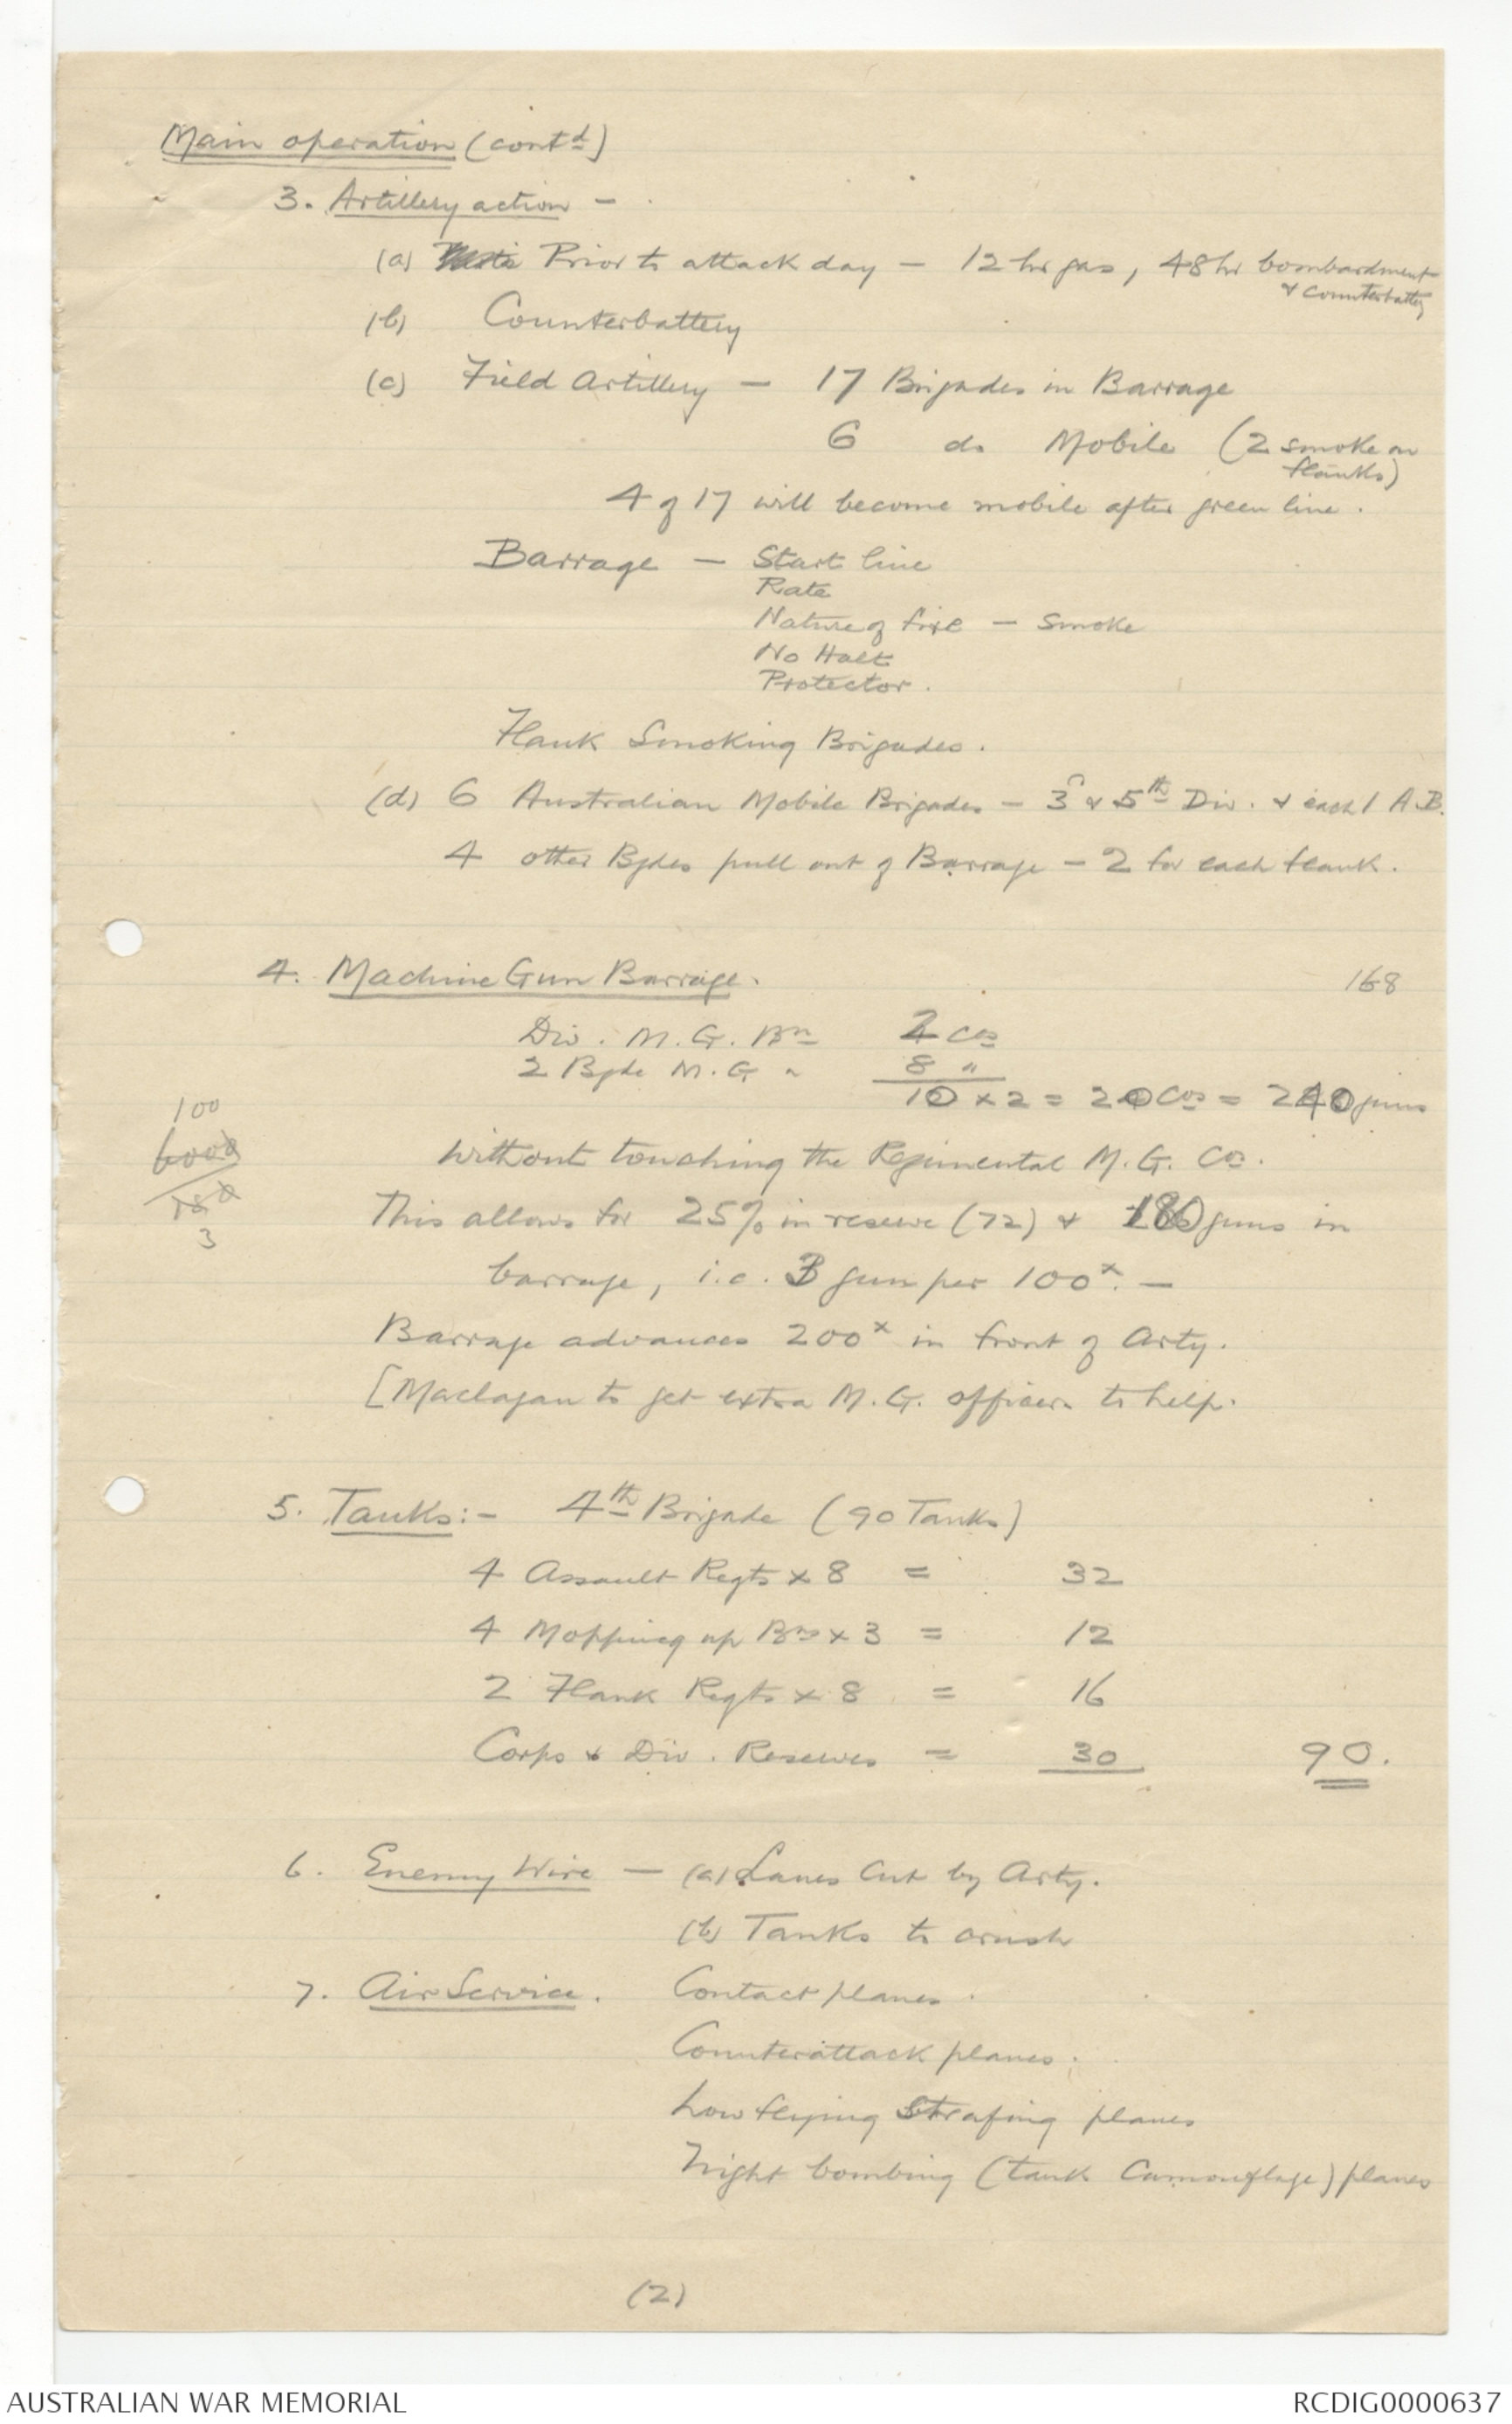 Main operation (contd)
3. Artillery action -
(a) Prior to attack day - 12 hr gas, 48 hr bombardment
& counterbattery
(b) Counterbattery
(c) Field Artillery - 17 Brigades in Barrage
6 do Mobile (2 smoke on
flanks)
4 of 17 will become mobile after green line.
Barrage - Start line
Rate
Nature of fire - smoke
No Halt
Protector.
Flank Smoking Brigades.
(d) 6 Australian Mobile Brigades - 3rd & 5th Div. & each 1 A.B.
4 other Bgdes pull out of Barrage - 2 for each flank.
4. Machine Gun Barrage.
168
Div. M.G. Bn 2 Cos
2 Bgde M.G. " 8 "
10 x 2 = 20 Cos = 240 guns
100
6000
3
without touching the Regimental M.G. Co.
This allows for 25% in reserve (72) & 180 guns in
barrage, i.e. 3 gun per 100x. -
Barrage advances 200x in front of Arty.
[Maclagan to get extra M.G. officers to help.
5. Tanks:- 4th Brigade (90 Tanks)
4 Assault Regts x 8 = 32
4 Mopping up Bns x 3 = 12
2 Flank Regts x 8 = 16
Corps & Div. Reserves = 30 90.
6. Enemy Wire - (a) Lanes Cut by Arty.
(b) Tanks to crush
7. Air Service. Contact planes.
Counterattack planes.
Low flying Strafing planes
Night bombing (tank Camouflage) planes
(2)
AUSTRALIAN WAR MEMORIAL
RCDIG0000637